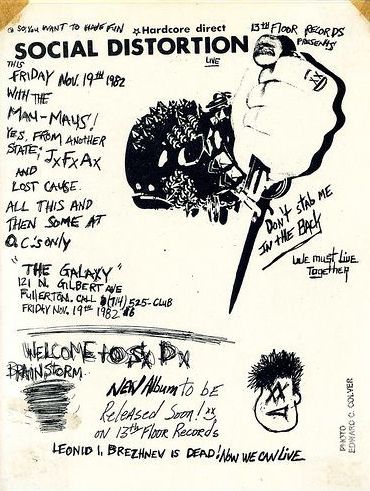 SO, YOU WANT TO HAVE FUN
☆Hardcore direct
13th FLOOR RECORDS
PRESENTS
SOCIAL DISTORTION
LIVE
THIS
FRIDAY NOV. 19th 1982
WITH THE
MAU-MAUS!
YES, FROM ANOTHER
STATE; JxFxAx
AND
LOST CAUSE.
ALL THIS AND
THEN SOME AT
O.C.'s ONLY
"THE GALAXY"
121 N. GILBERT AVE
FULLERTON. CALL (714) 525-CLUB
FRIDAY NOV. 19th 1982
DON'T STAB ME
IN THE BACK
WE MUST LIVE
TOGETHER
WELCOME to SxDx
BRAINSTORM
NEW Album to be
Released Soon!
ON 13th Floor Records
LEONID I, BREZHNEV IS DEAD! NOW WE CAN LIVE
PHOTO
EDWARD C. COLVER